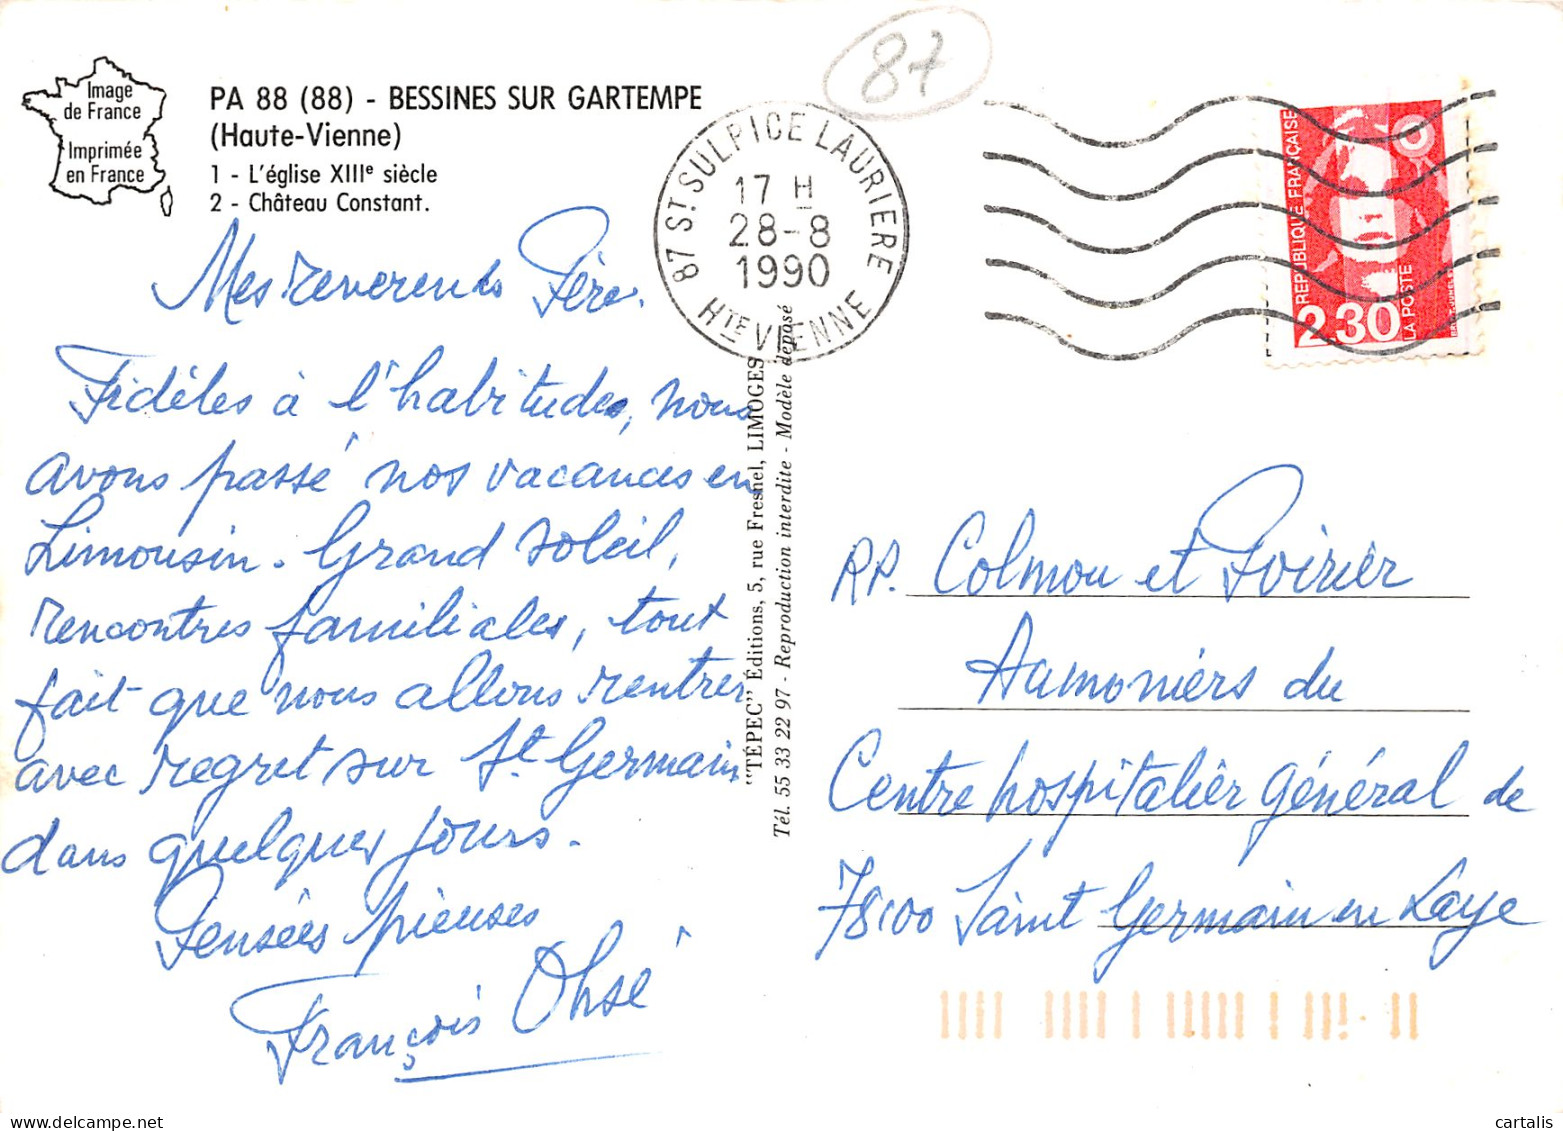 Image
de France
Imprimée
en France
PA 88 (88) - BESSINES SUR GARTEMPE
(Haute-Vienne)
1 - L'église XIIIe siècle
2 - Château Constant.
87
87 ST. SULPICE LAURIERE
17 H
28-8
1990
HTE VIENNE
REPUBLIQUE FRANÇAISE
LA POSTE
2.30
Mes reverends Père.
Fidéles à l'habitude, nous
avons passé nos vacances en
Limousin. Grand soleil,
rencontres familiales, tout
fait que nous allons rentrer
avec regret sur St Germain
dans quelques jours.
Pensées pieuses
François Ohsé
"TÉPEC" Éditions, 5, rue Fresnel, LIMOGES
Tél. 55 33 22 97 - Reproduction interdite - Modèle déposé
RP. Colmou et Poirier
Aumoniers du
Centre hospitalier général de
78100 Saint Germain en Laye
delcampe.net
cartalis